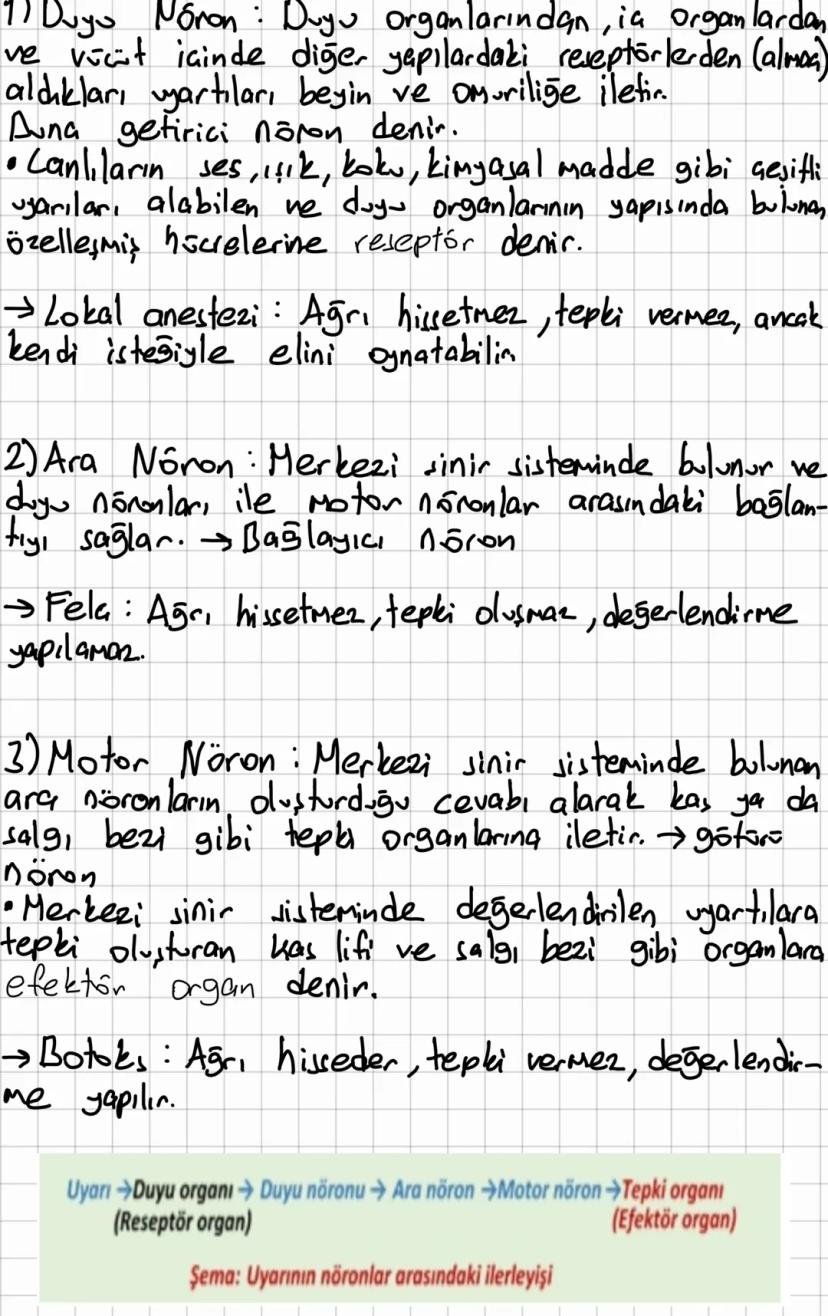 1) Duyu Nöron : Duyu organlarından, iç organlardan
ve vücut içinde diğer yapılardaki reseptörlerden (almaç)
aldıkları uyartıları beyin ve omuriliğe iletir.
Buna getirici nöron denir.
• Canlıların ses, ışık, koku, kimyasal madde gibi çeşitli
uyarıları alabilen ve duyu organlarının yapısında bulunan
özelleşmiş hücrelerine reseptör denir.
→ Lokal anestezi : Ağrı hissetmez, tepki vermez, ancak
kendi isteğiyle elini oynatabilir.
2) Ara Nöron : Merkezi sinir sisteminde bulunur ve
duyu nöronları ile motor nöronlar arasındaki bağlan-
tıyı sağlar. → Bağlayıcı nöron
→ Felç : Ağrı hissetmez, tepki oluşmaz, değerlendirme
yapılamaz.
3) Motor Nöron : Merkezi sinir sisteminde bulunan
ara nöronların oluşturduğu cevabı alarak kas ya da
salgı bezi gibi tepki organlarına iletir. → götürü
nöron
• Merkezi sinir sisteminde değerlendirilen uyartılara
tepki oluşturan kas lifi ve salgı bezi gibi organlara
efektör organ denir.
→ Botoks : Ağrı hisseder, tepki vermez, değerlendir-
me yapılır.
Uyarı →Duyu organı → Duyu nöronu → Ara nöron →Motor nöron →Tepki organı
(Reseptör organ) (Efektör organ)
Şema: Uyarının nöronlar arasındaki ilerleyişi